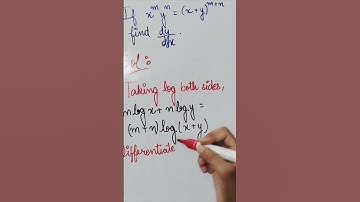 If x^m y^n = (x+y)^{m+n}
find dy/dx.
Sol:
Taking log both sides,
m log x + n log y =
(m+n) log (x+y)
Differentiate